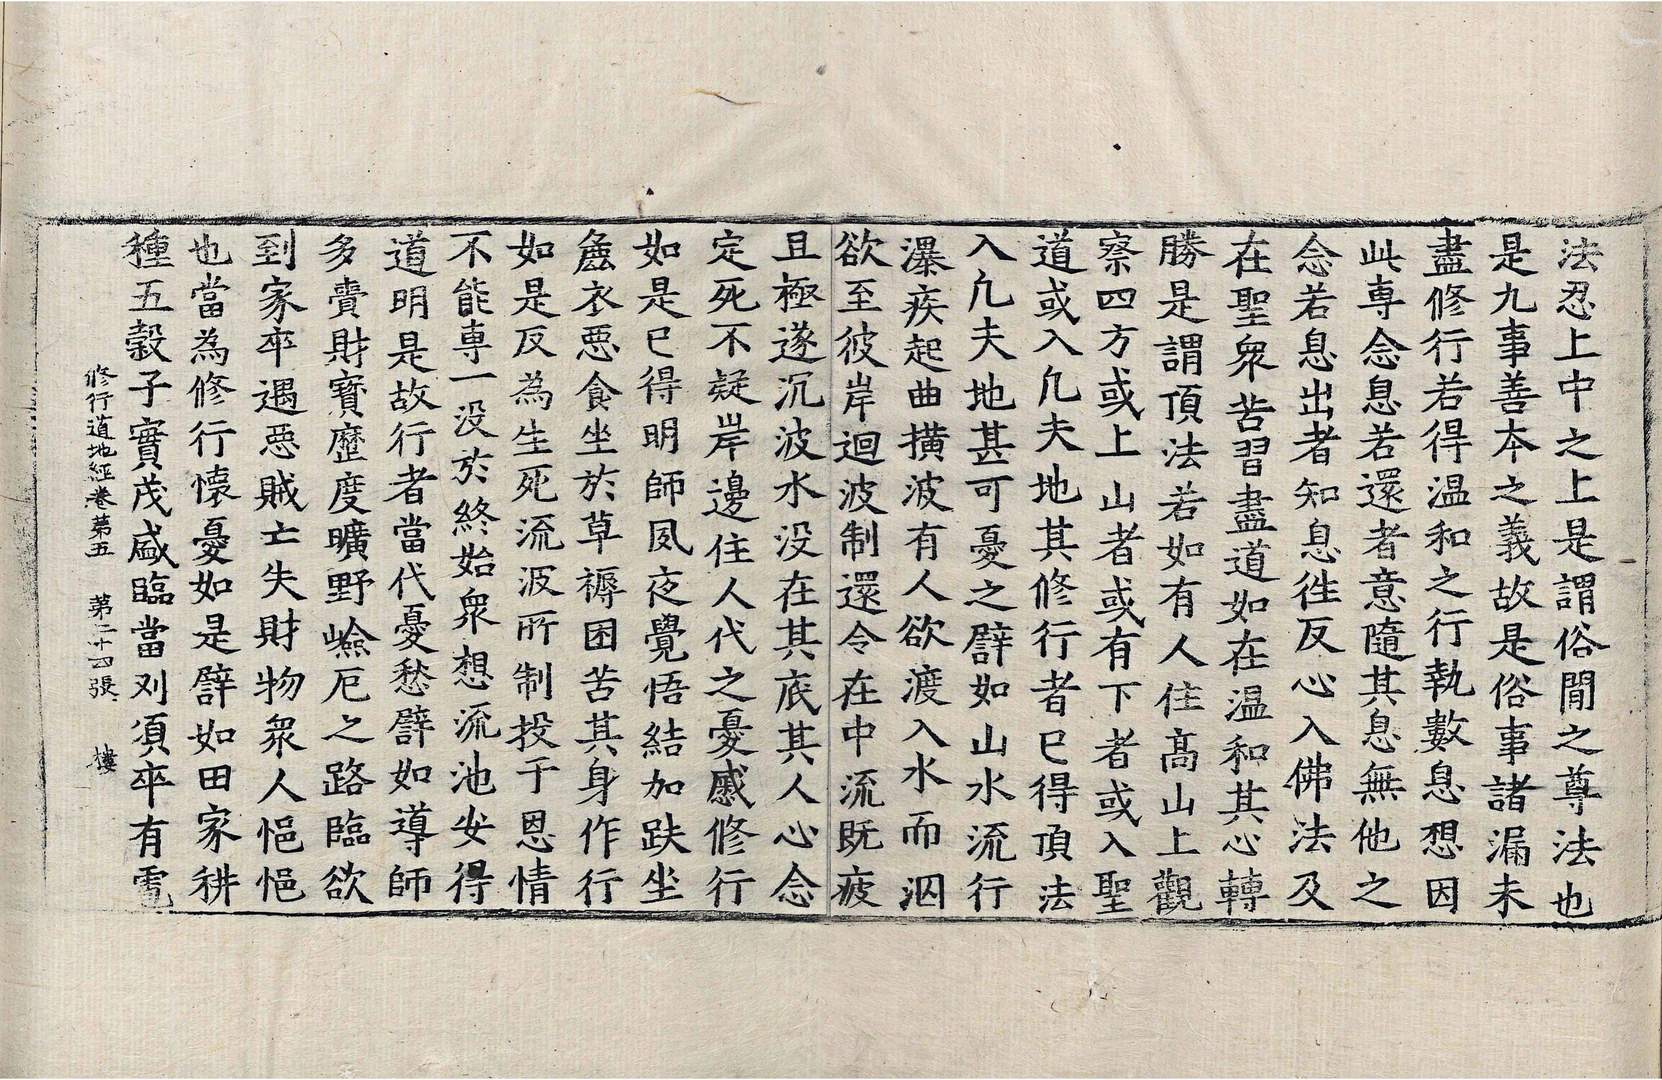 法忍上中之上是謂俗閒之尊法也
是九事善本之義故是俗事諸漏未
盡修行若得温和之行執數息想因
此専念息若還者意隨其息無他之
念若息出者知息徃反心入佛法及
在聖衆苦習盡道如在温和其心轉
勝是謂頂法若如有人住髙山上觀
察四方或上山者或有下者或入聖
道或入凢夫地其修行者已得頂法
入凢夫地甚可憂之譬如山水流行
瀑疾起曲撗波有人欲渡入水而泅
欲至彼岸迴波制還令在中流既疲
且極遂沉波水没在其底其人心念
定死不疑岸邊住人代之憂慼修行
如是已得明師夙夜覺悟結加趺坐
麁衣惡食坐於草褥困苦其身作行
如是反為生死流波所制投于恩情
不能専一没於終始衆想流池安得
道明是故行者當代憂愁譬如導師
多賷財寶歷度曠野嶮厄之路臨欲
到家卒遇惡賊亡失財物衆人悒悒
也當為修行懷憂如是譬如田家耕
種五穀子實茂盛臨當刈須卒有雹
修行道地經卷第五 第二十四張 樓